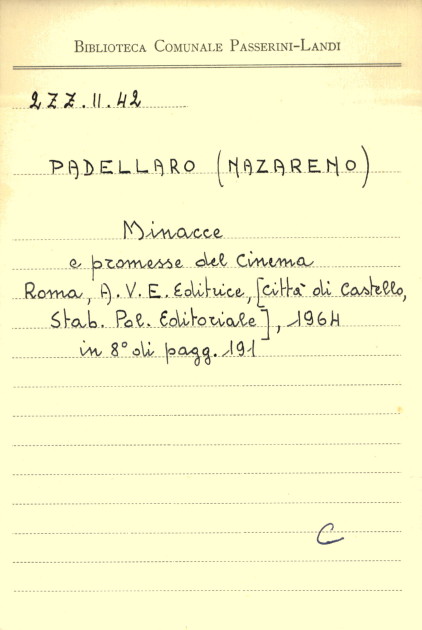 BIBLIOTECA COMUNALE PASSERINI-LANDI
2ZZ.II.42
PADELLARO (NAZARENO)
Minacce
e promesse del Cinema
Roma, A.V.E. Editrice, [Città di Castello,
Stab. Pol. Editoriale], 1964
in 8° di pagg. 191
C